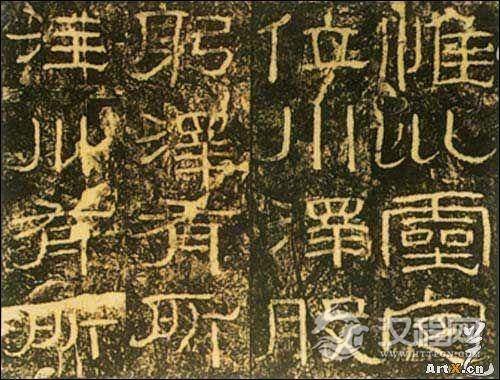 惟巛靈定
位川澤股
躬澤有所
注川有所
汉程网
HTTPCN.COM
ArtX.cn